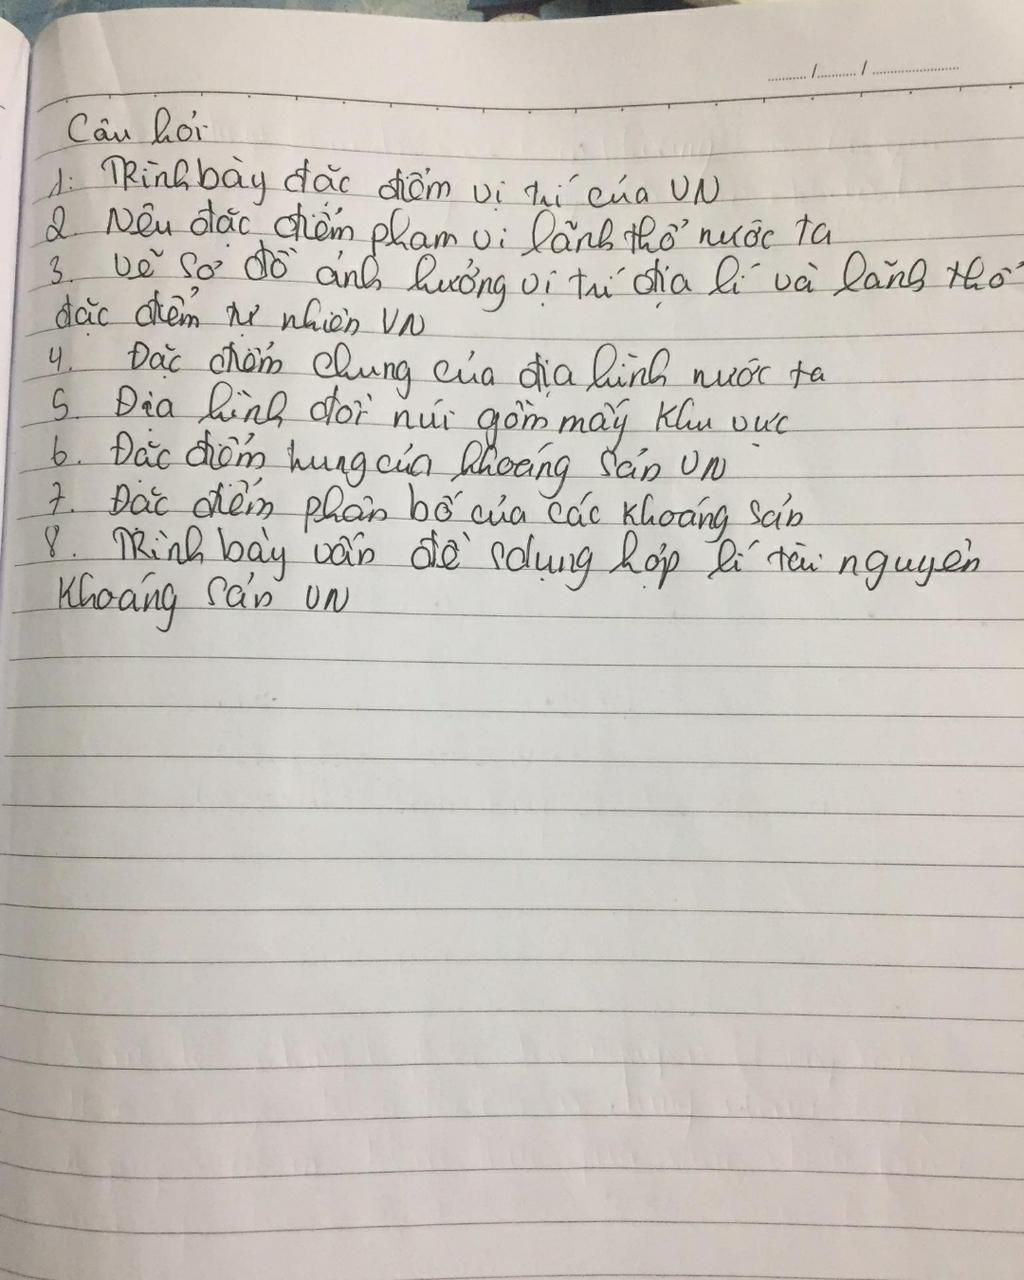 Câu hỏi
1. Trình bày đặc điểm vị trí của VN
2. Nêu đặc điểm phạm vi lãnh thổ nước ta
3. vẽ sơ đồ ảnh hưởng vị trí địa lí và lãnh thổ
đặc điểm tự nhiên VN
4. Đặc điểm chung của địa hình nước ta
5. Địa hình đồi núi gồm mấy khu vực
6. Đặc điểm hung của khoáng sản VN
7. Đặc điểm phân bố của các khoáng sản
8. Trình bày vấn đề sdụng hợp lí tài nguyên
khoáng sản VN